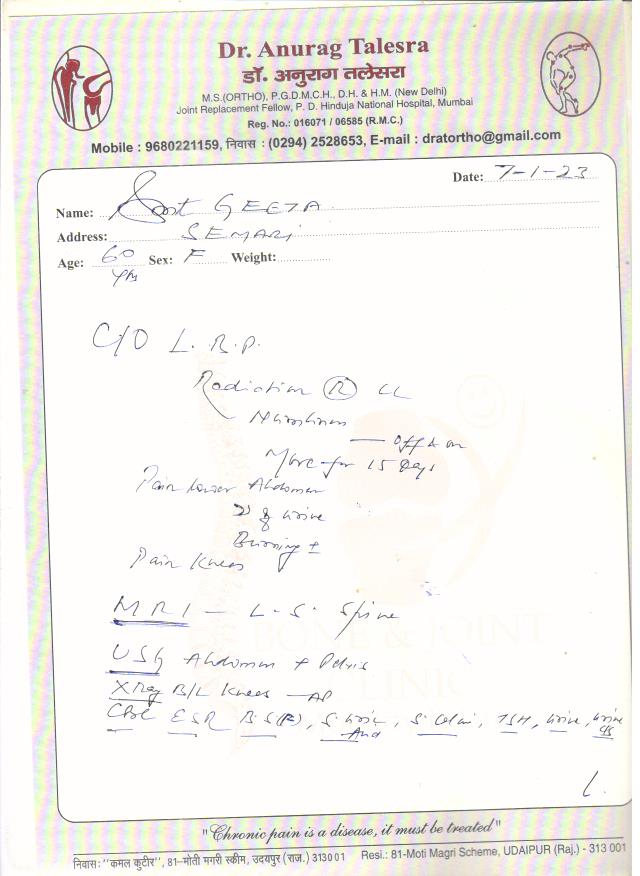 Dr. Anurag Talesra
डॉ. अनुराग तलेसरा
M.S.(ORTHO), P.G.D.M.C.H., D.H. & H.M. (New Delhi)
Joint Replacement Fellow, P. D. Hinduja National Hospital, Mumbai
Reg. No.: 016071 / 06585 (R.M.C.)
Mobile : 9680221159, निवास : (0294) 2528653, E-mail : dratortho@gmail.com
Date: 7-1-23
Name: Smt GEETA
Address: SEMARI
Age: 60 yrs Sex: F Weight:
C/O L.B.P.
Radiation (R) LL
Numbness
— Off & on
More for 15 days
Pain lower Abdomen
urine
Burning +
Pain Knees
MRI - L.S. Spine
USG Abdomen + Pelvis
X Ray B/L Knees - AP
CBC ESR B.S(R), S. Uric Acid, S. Calcium, TSH, Urine, Urine C/S
BONE & JOINT
CLINIC
"Chronic pain is a disease, it must be treated"
निवास: "कमल कुटीर", 81-मोती मगरी स्कीम, उदयपुर (राज.) 313001 Resi.: 81-Moti Magri Scheme, UDAIPUR (Raj.) - 313 001